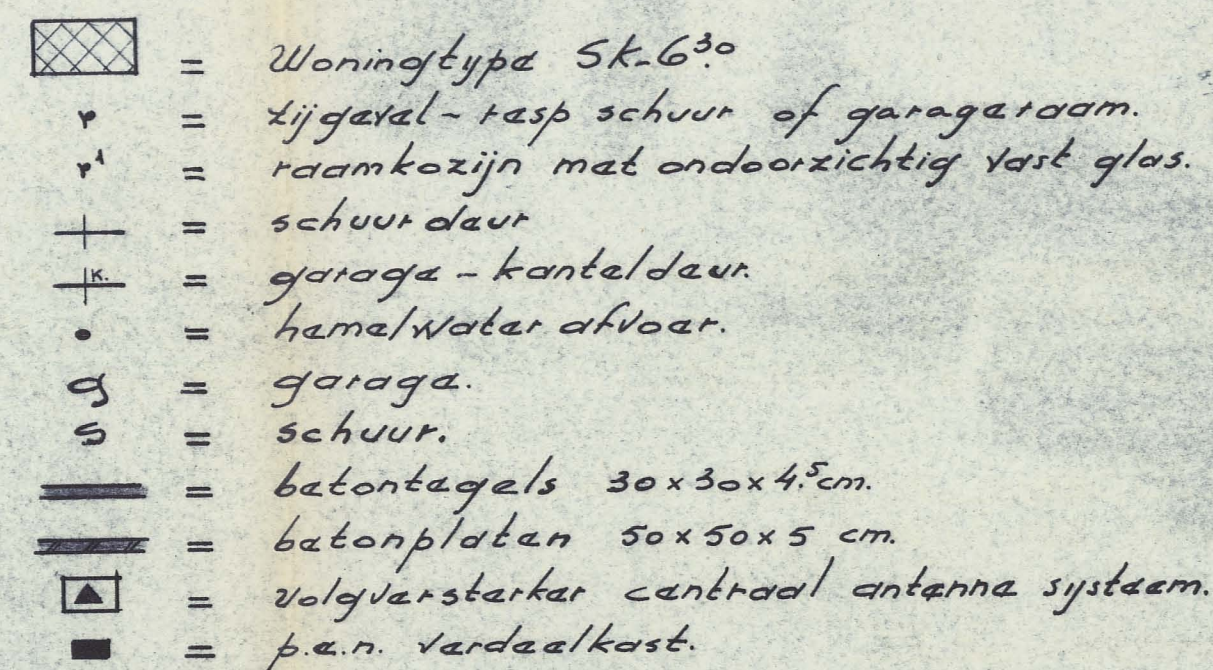 = Woningtype SK-6.³⁰
r = zijgevel - resp schuur of garageraam.
r¹ = raamkozijn met ondoorzichtig vast glas.
= schuurdeur
K. = garage - kanteldeur.
• = hemelwater afvoer.
g = garage.
s = schuur.
= betontegels 30x30x4.⁵cm.
= betonplaten 50x50x5 cm.
= volgversterker centraal antenne systeem.
= p.e.n. verdeelkast.